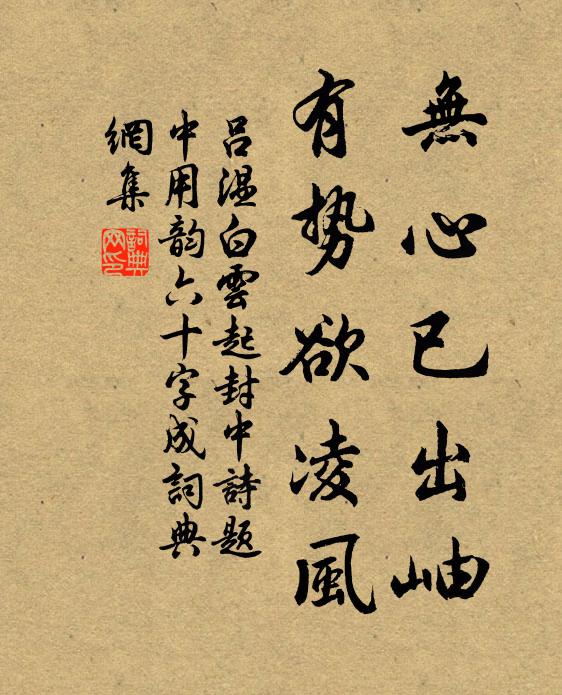 無心已出岫
有势欲凌風
吕温白雲起封中詩题
中用韵六十字成詞典
網集
詞典網印